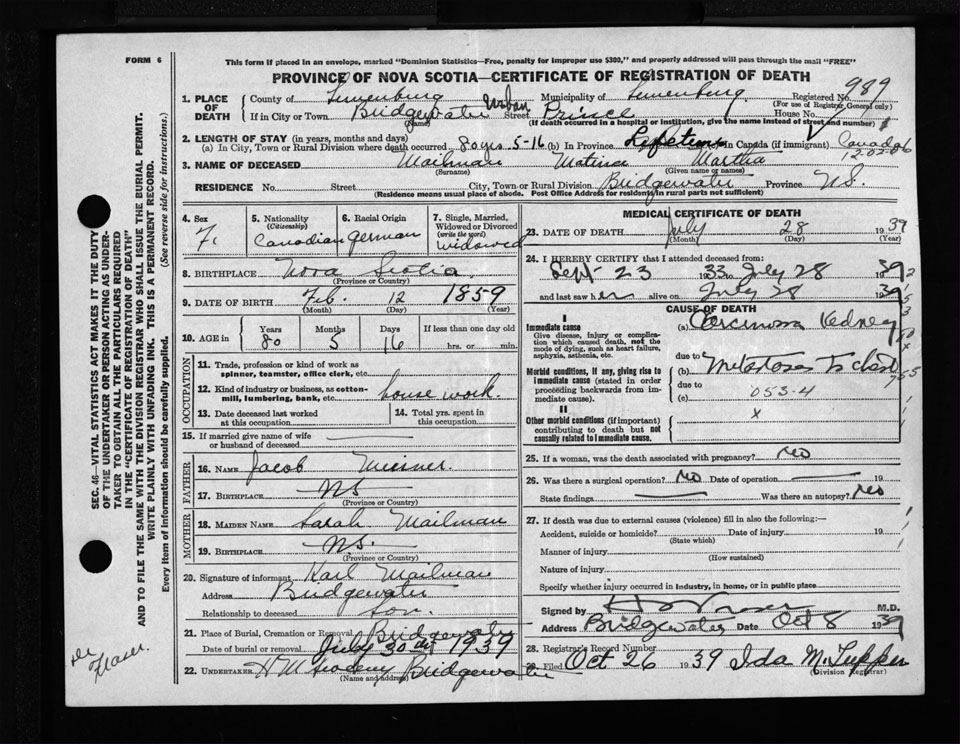 FORM 6
This form if placed in an envelope, marked "Dominion Statistics—Free, penalty for improper use $300," and properly addressed will pass through the mail "FREE"
PROVINCE OF NOVA SCOTIA—CERTIFICATE OF REGISTRATION OF DEATH
989
1. PLACE OF DEATH County of Lunenburg Municipality of Lunenburg Registered No.
(For use of Registrar General only)
If in City or Town Bridgewater Urban Street Prince House No.
(Name) (If death occurred in a hospital or institution, give the name instead of street and number)
2. LENGTH OF STAY (in years, months and days)
(a) In City, Town or Rural Division where death occurred 80 yrs 5-16 (b) In Province Lifetime (c) In Canada (if immigrant) Canada
3. NAME OF DECEASED Mailman Martha
(Surname) (Given name or names)
RESIDENCE No. Street City, Town or Rural Division Bridgewater Province N.S.
(Residence means usual place of abode. Post Office Address for residents in rural parts not sufficient)
4. Sex F.
5. Nationality (Citizenship) Canadian
6. Racial Origin German
7. Single, Married, Widowed or Divorced (write the word) Widowed
8. BIRTHPLACE Nova Scotia
(Province or Country)
9. DATE OF BIRTH Feb. 12 1859
(Month) (Day) (Year)
10. AGE in Years Months Days If less than one day old
80 5 16 hrs. or min.
OCCUPATION
11. Trade, profession or kind of work as spinner, teamster, office clerk, etc.
12. Kind of industry or business, as cotton-mill, lumbering, bank, etc. house work.
13. Date deceased last worked at this occupation
14. Total yrs. spent in this occupation
15. If married give name of wife or husband of deceased
FATHER
16. NAME Jacob Meisner
17. BIRTHPLACE N.S.
(Province or Country)
MOTHER
18. MAIDEN NAME Sarah Mailman
19. BIRTHPLACE N.S.
(Province or Country)
20. Signature of informant Karl Mailman
Address Bridgewater
Relationship to deceased Son.
21. Place of Burial, Cremation or Removal Bridgewater
Date of burial or removal July 30th 1939
22. UNDERTAKER Bridgewater
(Name and address)
MEDICAL CERTIFICATE OF DEATH
23. DATE OF DEATH July 28 1939
(Month) (Day) (Year)
24. I HEREBY CERTIFY that I attended deceased from:
Sept 23 1933 to July 28 1939
and last saw her alive on July 28 1939
CAUSE OF DEATH
I
Immediate cause (a) Carcinoma Kedney
Give disease, injury or complication which caused death, not the mode of dying, such as heart failure, asphyxia, asthenia, etc.
due to
Morbid conditions, if any, giving rise to immediate cause (stated in order proceeding backwards from immediate cause). (b) Metastases to chest
due to
(c) 053-4
II
Other morbid conditions (if important) contributing to death but not causally related to immediate cause. x
25. If a woman, was the death associated with pregnancy? no
26. Was there a surgical operation? no Date of operation
State findings Was there an autopsy? no
27. If death was due to external causes (violence) fill in also the following:—
Accident, suicide or homicide? Date of injury 19
(State which)
Manner of injury
(How sustained)
Nature of injury
Specify whether injury occurred in industry, in home, or in public place
Signed by M.D.
Address Bridgewater Date Oct 8 1939
28. Registrar's Record Number
29. Filed Oct 26 1939 Ida M. Tupper
(Division Registrar)
SEC. 46—VITAL STATISTICS ACT MAKES IT THE DUTY OF THE UNDERTAKER OR PERSON ACTING AS UNDERTAKER TO OBTAIN ALL THE PARTICULARS REQUIRED IN THE "CERTIFICATE OF REGISTRATION OF DEATH" AND TO FILE THE SAME WITH THE DIVISION REGISTRAR WHO SHALL ISSUE THE BURIAL PERMIT.
WRITE PLAINLY WITH UNFADING INK. THIS IS A PERMANENT RECORD.
Every item of information should be carefully supplied. (See reverse side for instructions.)